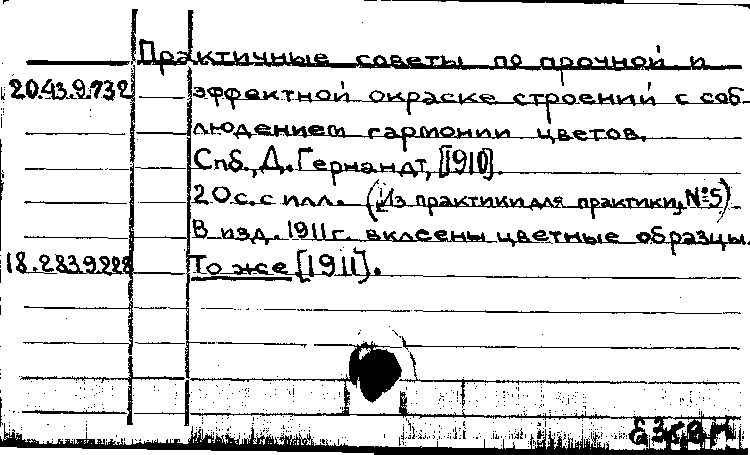 Практичные советы по прочной и
20.43.9.732 эффектной окраске строений с соб-
людением гармонии цветов.
Спб., Д. Гернандт, [1910].
20 с. с илл. (Из практики для практики, №5)
В изд. 1911 г. вклеены цветные образцы.
18.283.9.228 То же [1911].